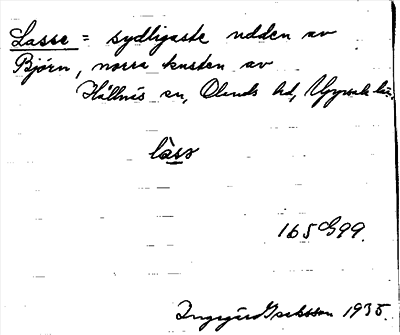 Lasse = sydligaste udden av
Björn, norra kusten av
Hållnäs sn, Olands hd, Uppsala län.
låss
165 G 99.
Ingegärd Isaksson 1935.